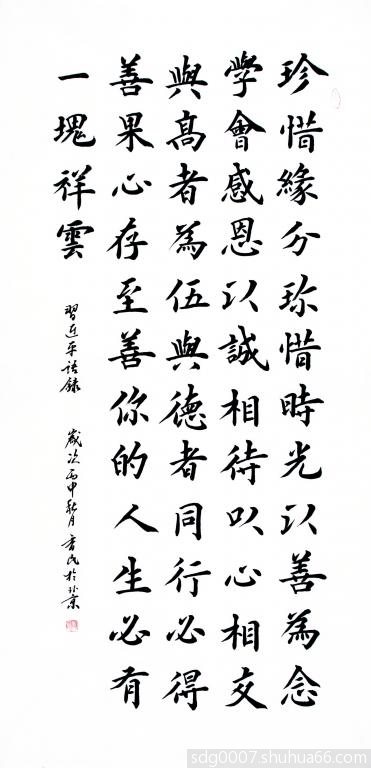 珍惜緣分珎惜時光以善為念
學會感恩以誠相待以心相交
與高者為伍與德者同行必得
善果心存至善你的人生必有
一塊祥雲
習近平語錄 歲次丙申秋月 香民於北京
sdg0007.shuhua66.com